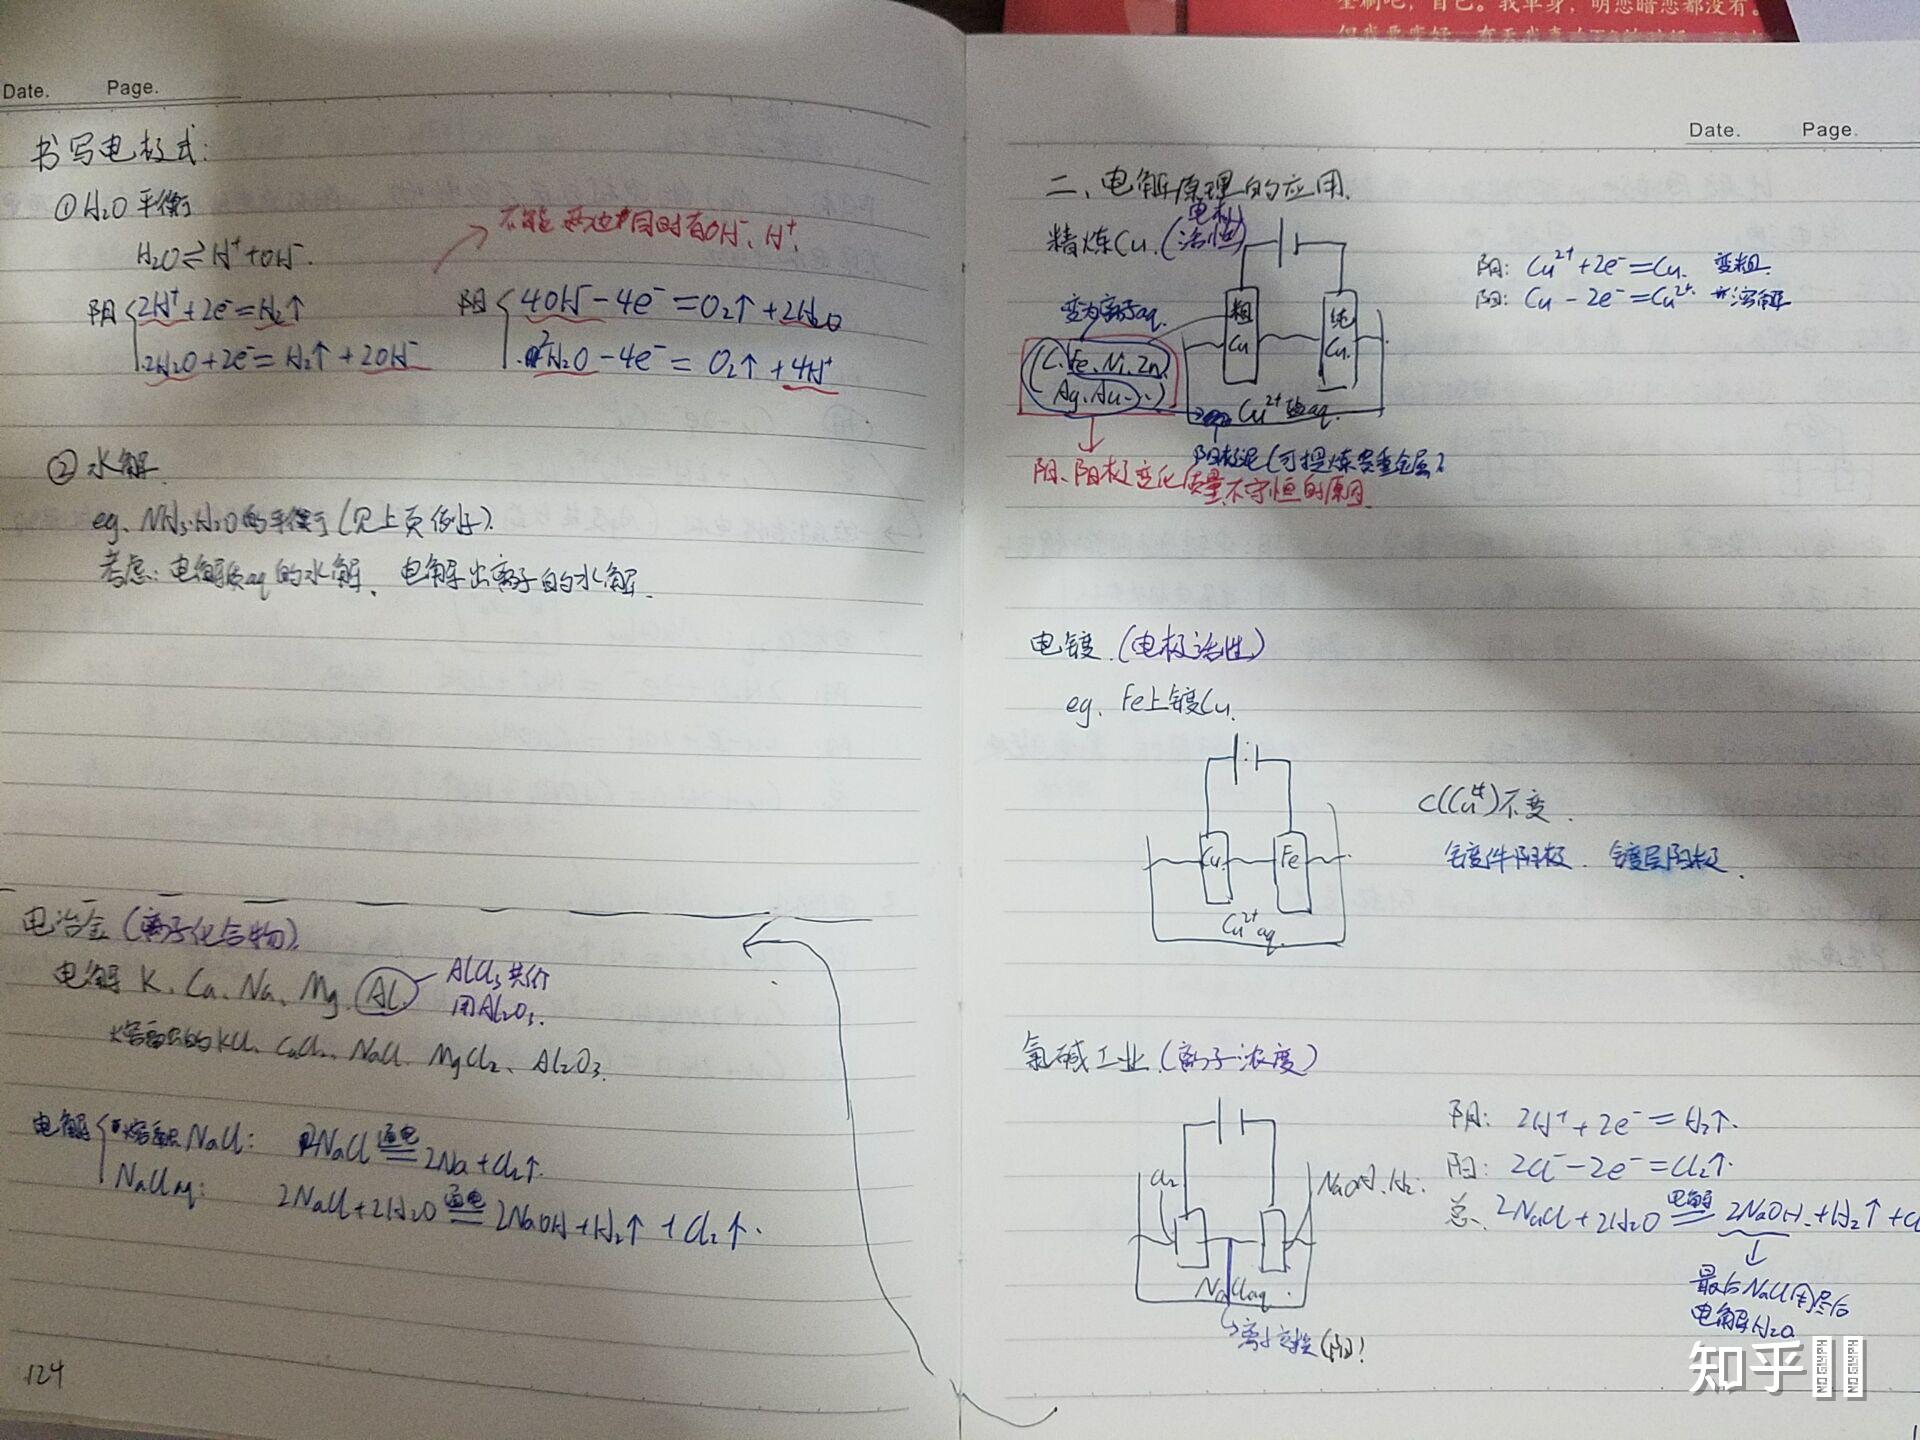 Date. Page.
书写电极式:
① H₂O 平衡
H₂O ⇌ H⁺ + OH⁻.
不能两边同时有OH⁻、H⁺.
阴 { 2H⁺ + 2e⁻ = H₂↑
2H₂O + 2e⁻ = H₂↑ + 2OH⁻
阳 { 4OH⁻ - 4e⁻ = O₂↑ + 2H₂O
2H₂O - 4e⁻ = O₂↑ + 4H⁺
② 水解
eg. NH₃·H₂O的平衡(见上页例子).
考虑: 电解质aq的水解、电解出离子的水解.
电冶金(离子化合物).
电解 K、Ca、Na、Mg、Al
AlCl₃共价
用Al₂O₃.
熔融的KCl、CaCl₂、NaCl、MgCl₂、Al₂O₃.
电解 { 熔融NaCl: 2NaCl 通电= 2Na + Cl₂↑.
NaCl aq: 2NaCl + 2H₂O 通电= 2NaOH + H₂↑ + Cl₂↑.
124
全刷吧,自己。我单身,明恋暗恋都没有。
Date. Page.
二、电解原理的应用.
精炼Cu.(电极活性)
阴: Cu²⁺ + 2e⁻ = Cu. 变粗.
阳: Cu - 2e⁻ = Cu²⁺. 溶解
变为离子aq.
粗Cu
纯Cu.
(C、Fe、Ni、Zn、
Ag、Au…)
Cu²⁺ aq.
阳极泥(可提炼贵重金属)
阴、阳极变化质量不守恒的原因.
电镀.(电极活性)
eg. Fe上镀Cu.
Cu
Fe
Cu²⁺aq.
c(Cu²⁺)不变.
镀件阴极. 镀层阳极.
氯碱工业.(离子浓度)
Cl₂
NaOH、H₂.
NaCl aq.
离子交换(阳)!
阴: 2H⁺ + 2e⁻ = H₂↑.
阳: 2Cl⁻ - 2e⁻ = Cl₂↑.
总、2NaCl + 2H₂O 电解= 2NaOH + H₂↑ + C
最后NaCl用尽后
电解H₂O
知乎